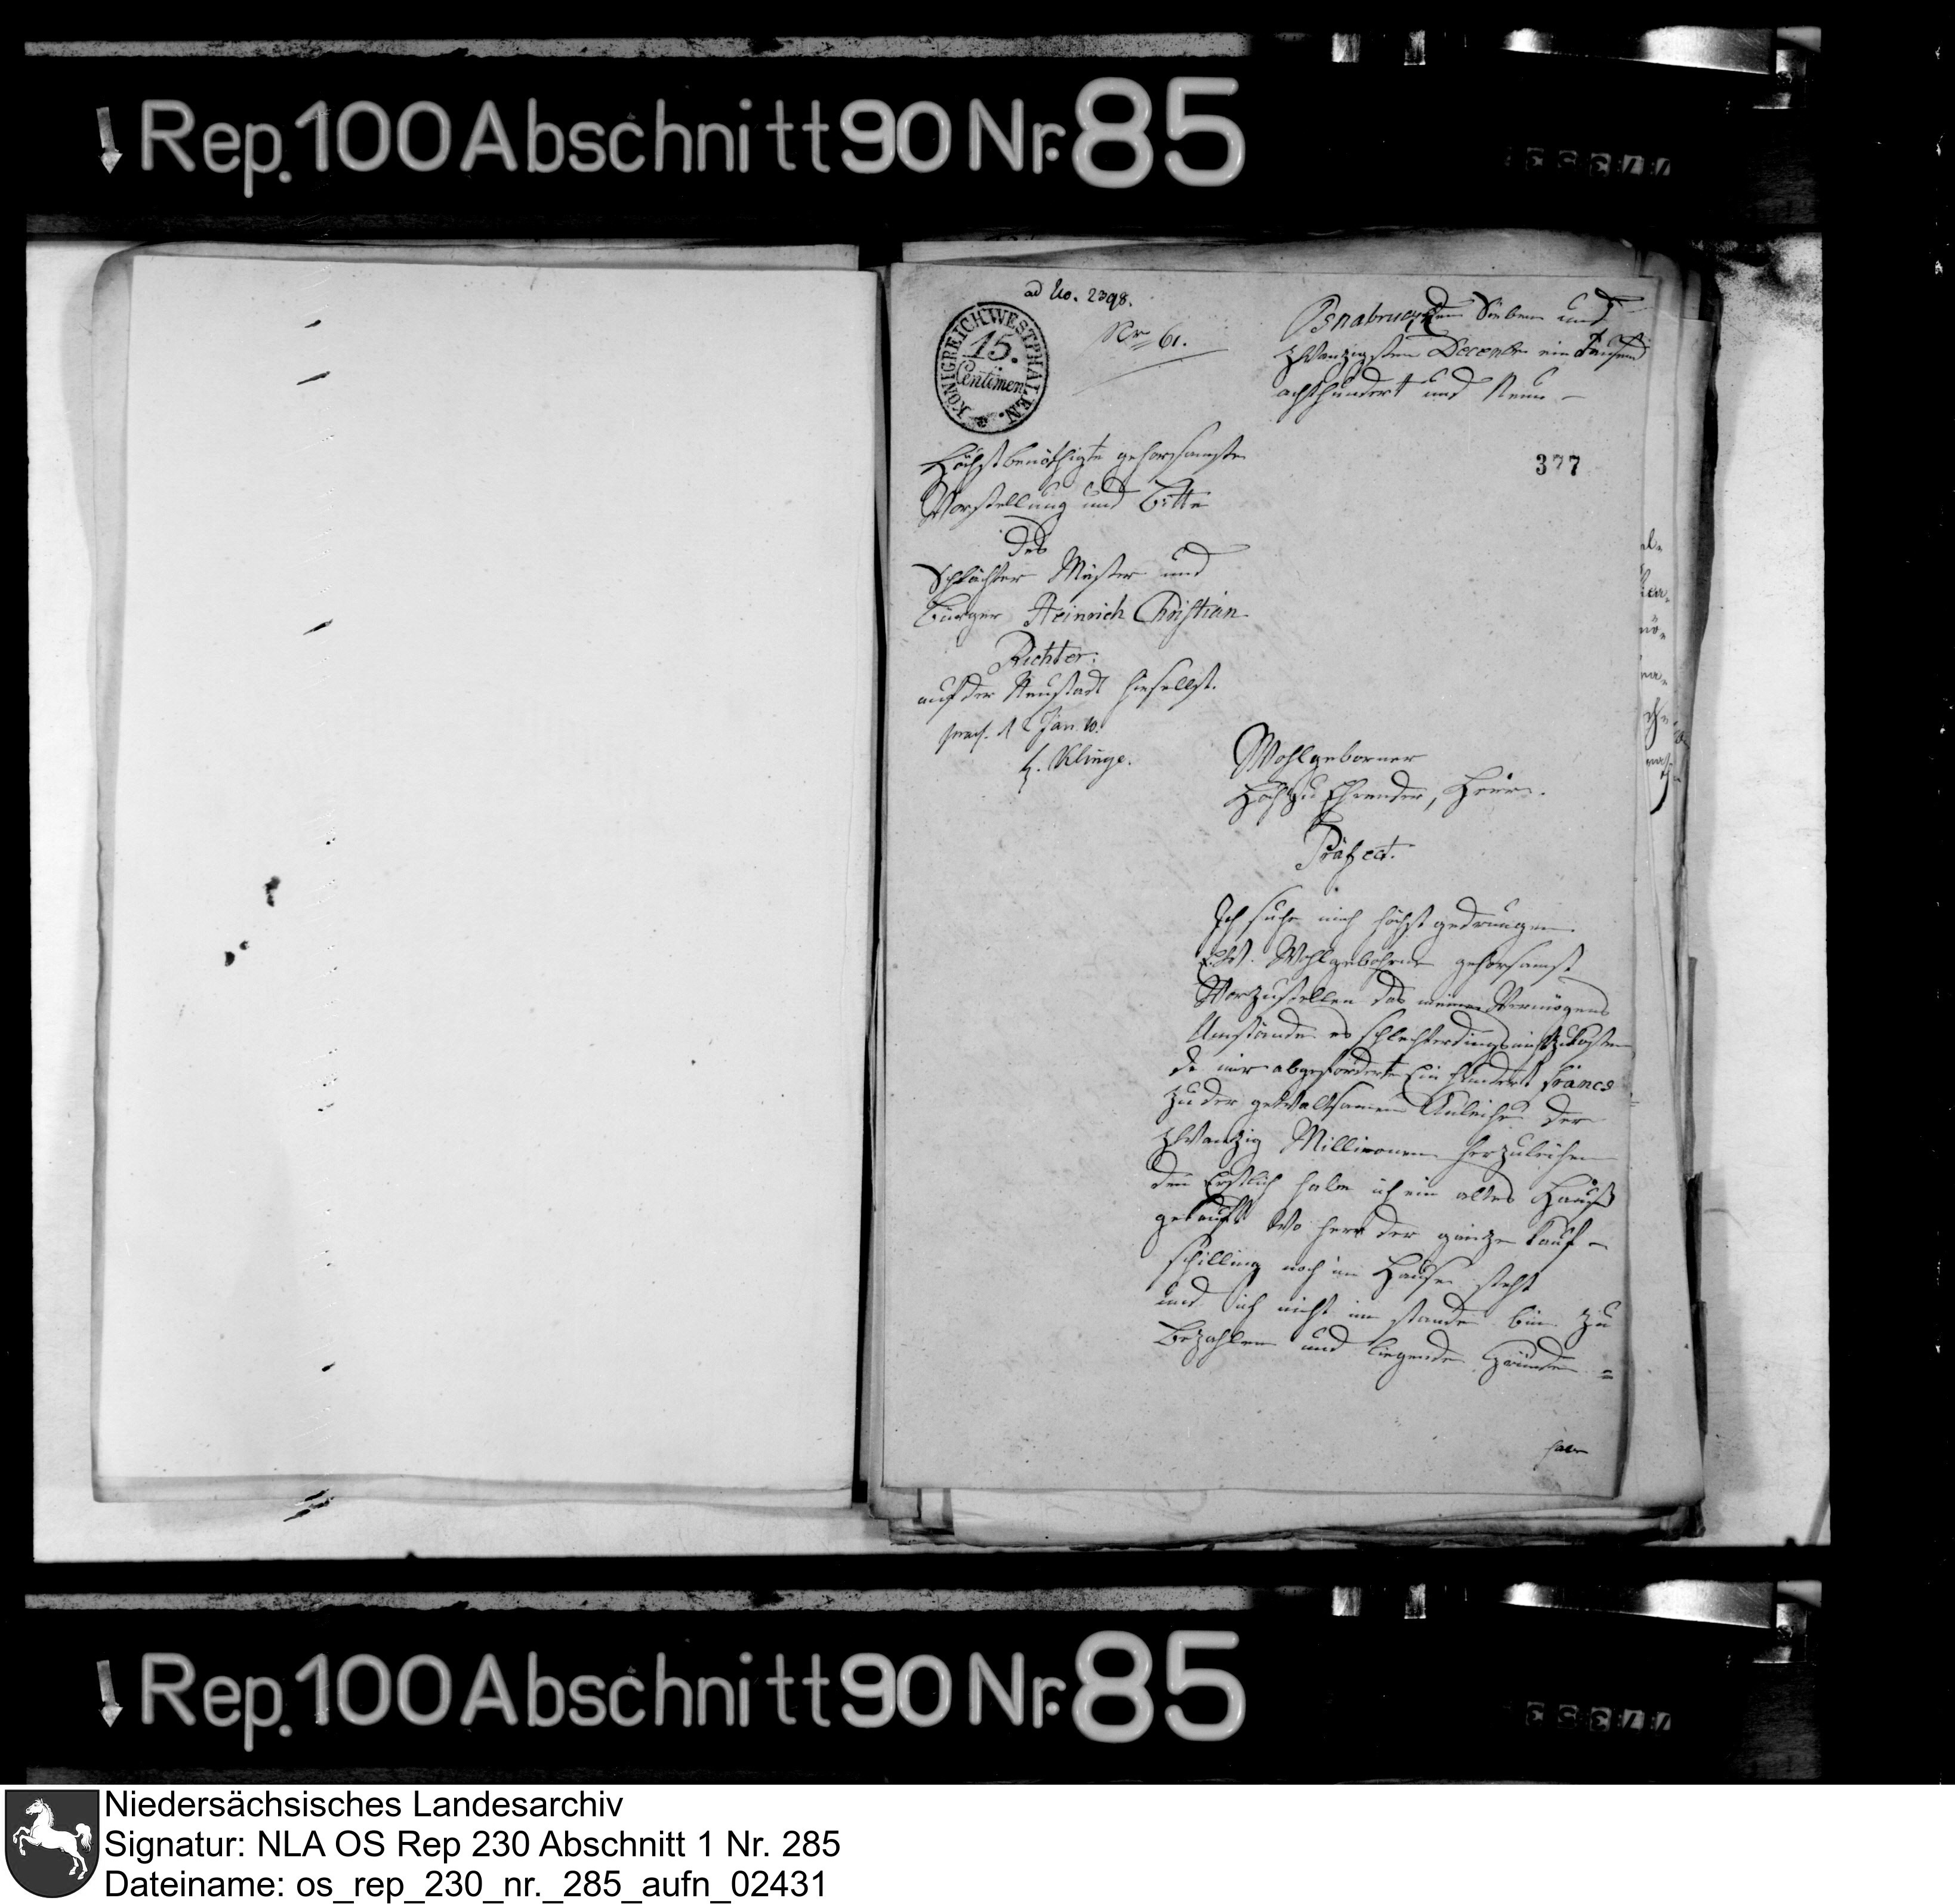 Rep. 100 Abschnitt 90 Nr. 85
ad No. 2398.
KÖNIGREICH WESTPHALEN.
15.
Centimen
No 61.
Osnabruck den Sieben und
zwanzigsten December ein Tausend
achthundert und Neun –
377
Höchstbenöthigte gehorsamste
Vorstellung und Bitte
des
Schlächter Meister und
Bürger Heinrich Christian
Richter.
auf der Neustadt hieselbst.
praes. d 2 Jan. 10.
Klinge.
Wohlgeborner
Höchst zu Ehrender, Herr.
Präfect.
Ich sehe mich höchst gedrungen
Ew. Wohlgebohrne gehorsamst
Vorzustellen das meine Vermögens
Umstände es schlechterdings nicht zulassen
de mir abgeforderte Ein hundert francs
zu der gewaltsamen Anleihe der
zwanzig Millionen herzuleihen
den Erstlich habe ich ein altes Hauß
gekauft wo her der ganze kauf –
schilling noch im Hause steht
und ich nicht im stande bin zu
Bezahlen und liegende Gründe =
habe
Rep. 100 Abschnitt 90 Nr. 85
Niedersächsisches Landesarchiv
Signatur: NLA OS Rep 230 Abschnitt 1 Nr. 285
Dateiname: os_rep_230_nr._285_aufn_02431